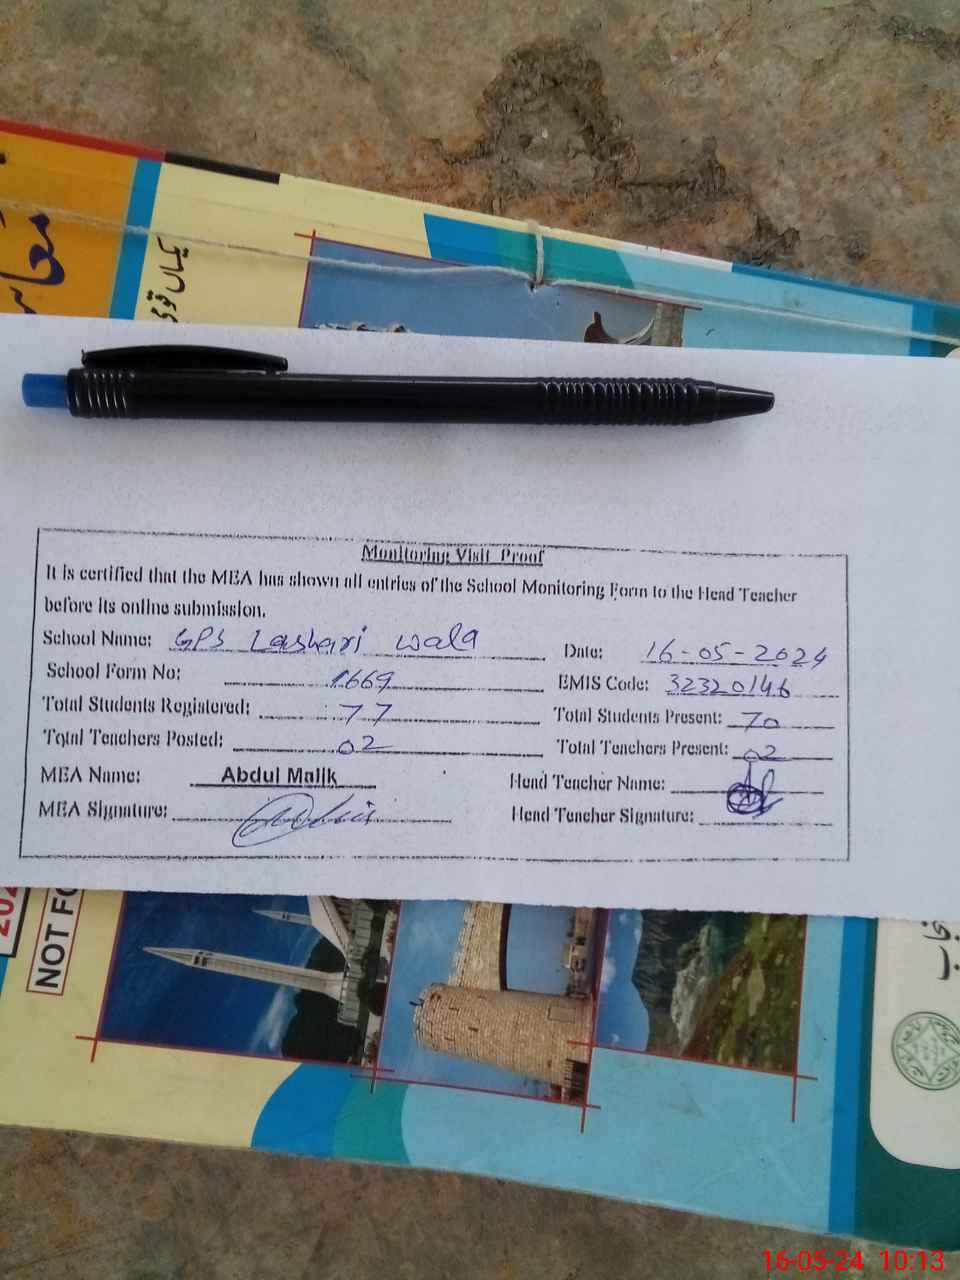 معاشر
یکساں قومی
Monitoring Visit Proof
It is certified that the MEA has shown all entries of the School Monitoring Form to the Head Teacher
before its online submission.
School Name: GPS Lashari wala Date: 16-05-2024
School Form No: 1669 EMIS Code: 32320146
Total Students Registered: 77 Total Students Present: 70
Total Teachers Posted: 02 Total Teachers Present: 02
MEA Name: Abdul Malik Head Teacher Name:
MEA Signature: Head Teacher Signature:
202
NOT FO
16-05-24 10:13